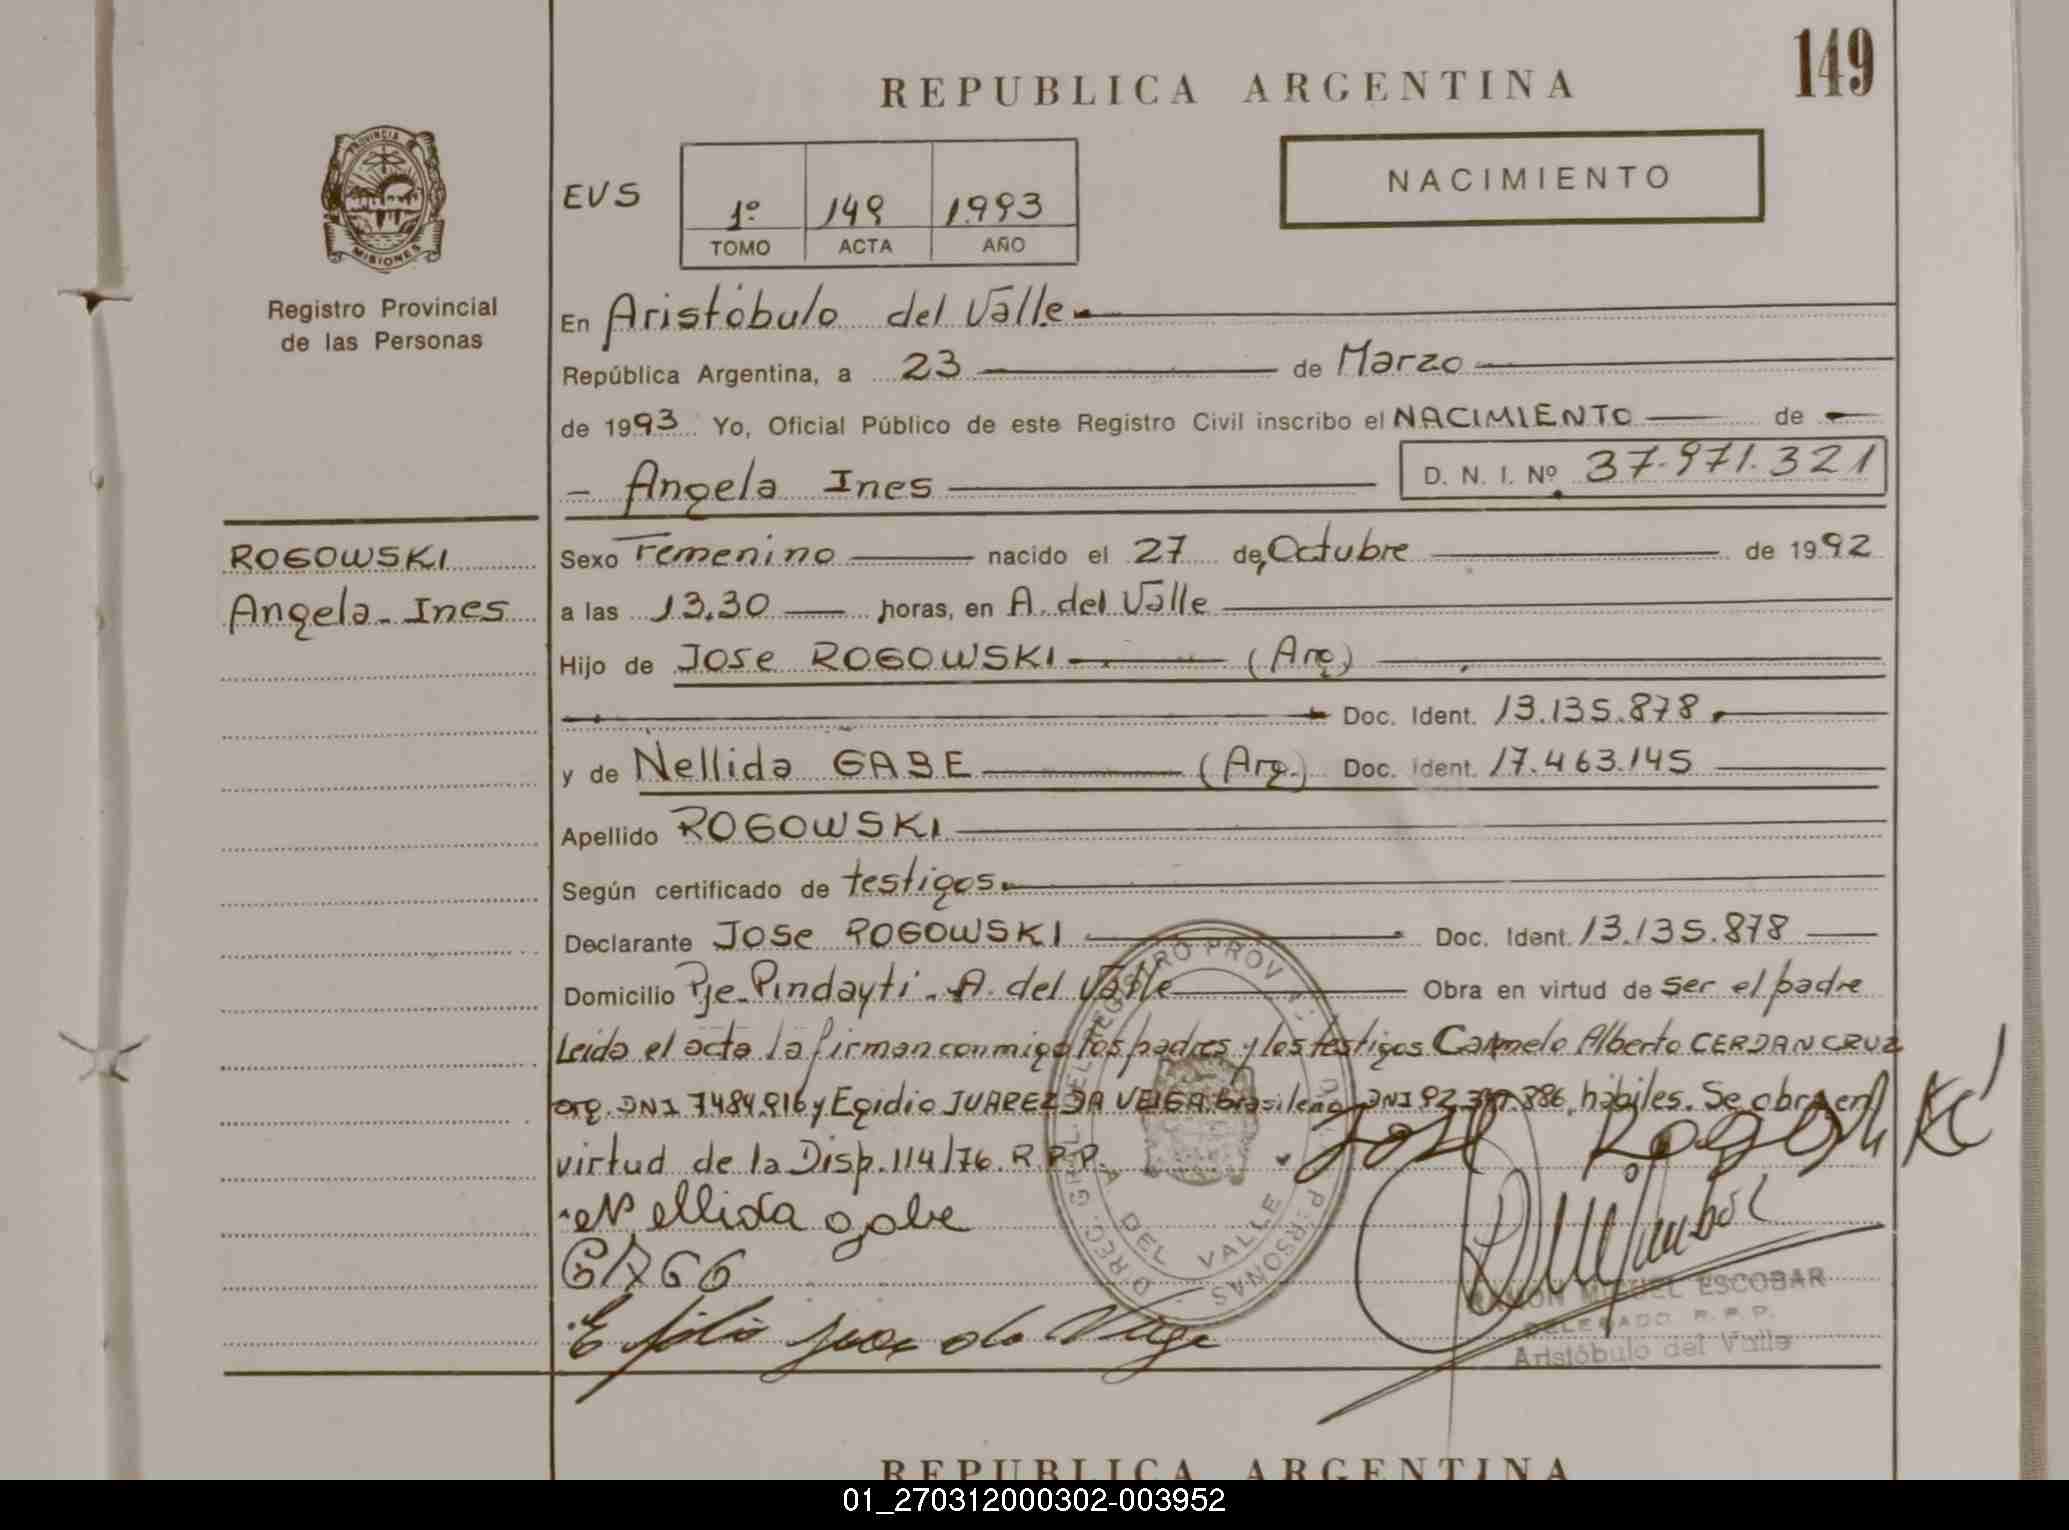 149
REPUBLICA ARGENTINA
NACIMIENTO
PROVINCIA
MISIONES
Registro Provincial
de las Personas
EVS
1º 149 1.993
TOMO ACTA AÑO
En Aristóbulo del Valle
República Argentina, a 23 de Marzo
de 1993 Yo, Oficial Público de este Registro Civil inscribo el NACIMIENTO de
Angela Ines D. N. I. Nº 37.971.321
ROGOWSKI
Angela Ines
Sexo Femenino nacido el 27 de Octubre de 1992
a las 13.30 horas, en A. del Valle
Hijo de Jose ROGOWSKI (Arg)
Doc. Ident. 13.135.878
y de Nellida GABE (Arg.) Doc. Ident. 17.463.145
Apellido ROGOWSKI
Según certificado de testigos
Declarante Jose ROGOWSKI Doc. Ident. 13.135.878
Domicilio Pje. Pindayti. A. del Valle Obra en virtud de ser el padre
Leida el acta la firman conmigo los padres y los testigos Carmelo Alberto CERDAN CRUZ
arg. DNI 7484.916 y Egidio JUAREZ DA VEIGA brasileño DNI 92. .886, habiles. Se obra en
virtud de la Disp. 114/76. R.P.P.
José Rogoski
Nellida gabe
RAMON MIGUEL ESCOBAR
DELEGADO R.P.P.
Aristóbulo del Valle
DIREC. GRAL. DEL REGISTRO PROV. PERSONAS
A. DEL VALLE
REPUBLICA ARGENTINA
01_270312000302-003952